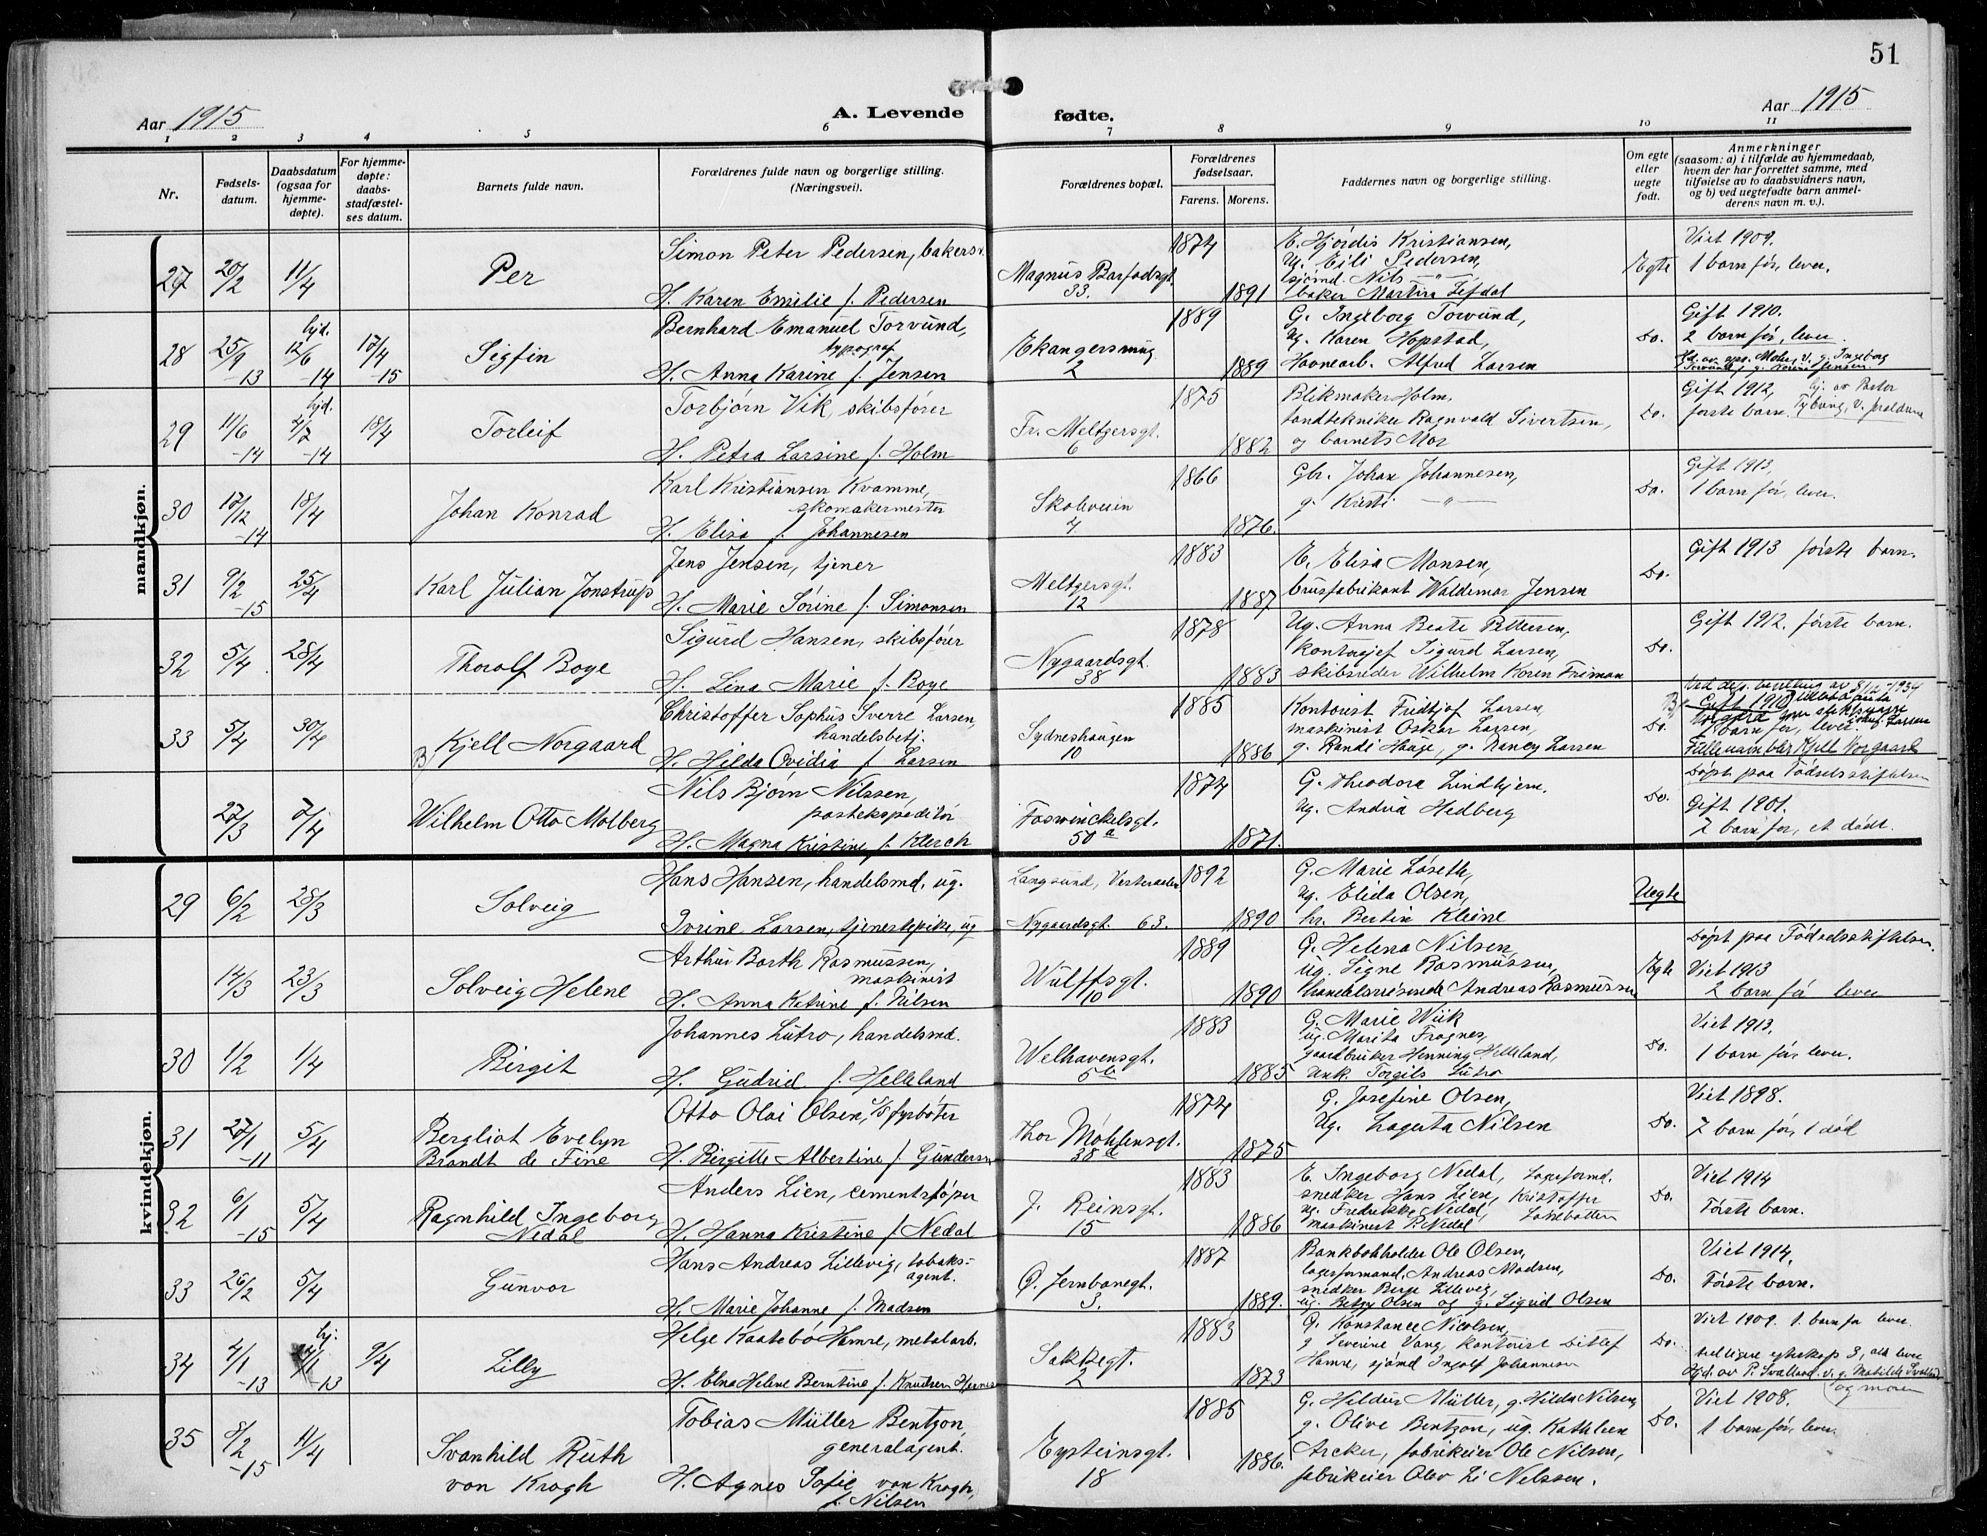 51
Aar 1915
A. Levende
fødte.
Aar 1915
1 2 3 4 5 6 7 8 9 10 11
Nr.
Fødsels-
datum.
Daabsdatum
(ogsaa for
hjemme-
døpte).
For hjemme-
døpte:
daabs-
stadfæstel-
ses datum.
Barnets fulde navn.
Forældrenes fulde navn og borgerlige stilling.
(Næringsvei).
Forældrenes bopæl.
Forældrenes
fødselsaar.
Farens. Morens.
Faddernes navn og borgerlige stilling.
Om egte
eller
uegte
født.
Anmerkninger
(saasom: a) i tilfælde av hjemmedaab,
hvem der har forrettet samme, med
tilføielse av to daabsvidners navn,
og b) ved uegtefødte barn anmel-
derens navn m. v.).
mandkjøn.
27 20/2 11/4 Per
Simon Peter Pedersen, bakers.
H. Karen Emilie f. Pedersen
Magnus Barfodsgt.
33.
1874
1891
E. Hjørdis Kristiansen,
Ug. Eili Pedersen,
sjømd. Nils -"-
baker Martin
Egte
Viet 1909.
1 barn før, lever.
28 25/9 -13 hjd. 12/6 -14 17/4 -15 Sigfin
Bernhard Emanuel Torvund,
typograf
H. Anna Karine f. Jensen
Ekangersmug
2
1889
1889
G. Ingeborg Torvund,
Ug. Karen Hopstad,
Havnearb. Alfred Larsen
Do.
Gift 1910.
2 barn før, lever.
29 11/6 -14 hjd. 2/7 -14 18/4 Torleif
Torbjørn Vik, skibsfører
H. Petra Larsine f. Holm
Fr. Meltzersgt.
6
1875
1882
Blikmaker Holm,
tandtekniker Ragnvald Sivertsen,
og barnets Mor
Do.
Gift 1912,
første barn.
30 17/12 -14 18/4 Johan Konrad
Karl Kristiansen Kvamme,
skomakermester
H. Elisa f. Johannesen
Skoleveien
4
1866
1876.
Gbr. Johan Johannesen,
g. Kristi -"-
Do.
Gift 1913,
1 barn før, lever.
31 9/2 -15 25/4 Karl Julian Jonstrup
Jens Jensen, tjener
H. Marie Sørine f. Simonsen
Meltzersgt.
12
1883
1887
E. Elisa Monsen,
brusfabrikant Waldemar Jensen
Do.
Gift 1913 første barn.
32 5/4 28/4 Thorolf Boye
Sigurd Hansen, skibsfører
H. Lina Marie f. Boye
Nygaardsgt.
38
1878
1883
Ug. Anna Beate Pettersen,
Kontorsjef Sigurd Larsen,
skibsreder Wilhelm Koren Friman
Do.
Gift 1912. første barn.
33 5/4 30/4 B Kjell Norgaard
Christoffer Sophus Sverre Larsen,
handelsbetj.
H. Hilda Ovidia f. Larsen
Sydneshaugen
10
1885
1886
Kontorist Fridtjof Larsen,
maskinist Oskar Larsen,
g. Randi Hauge, g. Nancy Larsen
Do.
B) Gift 1910
1 barn før, lever.
Fulle navn blir Kjell Norgaard
27/3 7/4 Wilhelm Otto Molberg
Nils Bjørn Nilssen,
postekspeditør
H. Magna Kristine f. Klerck
Foswinckelsgt.
50 a
1874
1871.
G. Theodora Lindhjem.
Ug. Andrea Hedberg
Do.
Døpt paa Fødselsstiftelsen
Gift 1901.
2 barn før, et dødt.
kvindekjøn.
29 6/2 28/3 Solveig
Hans Hansen, handelsmd. ug.
Ivrine Larsen, tjenestepike, ug
Langsund, Vesteraalen
Nygaardsgt. 63.
1892
1890
G. Marie Løseth,
Ug. Elida Olsen,
hr. Bertin Kleine
Uegte
14/3 23/3 Solveig Helene
Arthur Barth Rasmussen,
maskinist
H. Anna Katrine f. Nilsen
Wulffsgt.
10
1889
1890
G. Helena Nilsen,
Ug. Signe Rasmussen,
handelsreisende Andreas Rasmussen
Egte
Døpt paa Fødselsstiftelsen.
Viet 1913
2 barn før lever
30 1/2 1/4 Birgit
Johannes Lutro, handelsmd.
H. Gudrid f. Helleland
Welhavensgt.
5 b
1883
1885
G. Marie Wiik
ug. Marita Fragnes,
gaardbruker Henning Helleland,
Unk. Torgils Lutro
Do.
Viet 1913.
1 barn før, lever.
31 27/1 -11 5/4 Bergliot Evelyn
Brandt de Fine
Otto Olai Olsen, fyrbøter
H. Birgitte Albertine f. Gundersen
Thor Møhlensgt.
38 d
1874
1875
G. Josefine Olsen,
Ug. Lagerta Nilsen
Do.
Viet 1898.
7 barn før, 1 død
32 6/1 -15 5/4 Ragnhild Ingeborg
Nedal
Anders Lien, cementstøper
H. Hanna Kristine f. Nedal
J. Reinsgt.
15
1883
1886
E. Ingeborg Nedal, Lagerformd.
snedker Hans Lien, Kristoffer
Ug. Fredrikke Nedal,
maskinist P. Nedal
Do.
Viet 1914
Første barn.
33 26/2 5/4 Gunvor
Hans Andreas Lillevig, tobaks-
agent.
H. Marie Johanne f. Madsen
Ø. Jernbanegt.
3.
1887
1889.
Bankbokholder Ole Olsen,
lagerformand, Andreas Madsen,
snedker Berge Lillevig,
ug. Betzy Olsen og g. Sigrid Olsen
Do.
Viet 1914,
Første barn.
34 4/1 -13 hj. -13 9/4 Lilly
Helge Kaatebø Hamre, metalarb.
H. Elna Helene Berntine f. Knudsen
Sakkegt.
2
1883
1873
G. Konstance Nicolsen,
g. Severine Vang, kontorist Ditlef
Hamre, sjømd Ingolf Johannesen
Do.
Viet 1909. 1 barn før lever.
tidligere egteskap 3, alle lever
Hjd. av P. Svalland v. g. Matilde Svalland
og moren
35 8/2 -15 11/4 Svanhild Ruth
von Krogh
Tobias Müller Bentzon,
generalagent.
H. Agnes Sofie von Krogh,
f. Nilsen
Eysteinsgt.
18
1885
1886.
G. Hildur Müller, g. Hilda Nilsen,
g. Olive Bentzon, ug. Kathleen
Archer, fabrikeier Ole Nilsen,
fabrikeier Olav Li Nilssen.
Do.
Viet 1908.
1 barn før, lever.